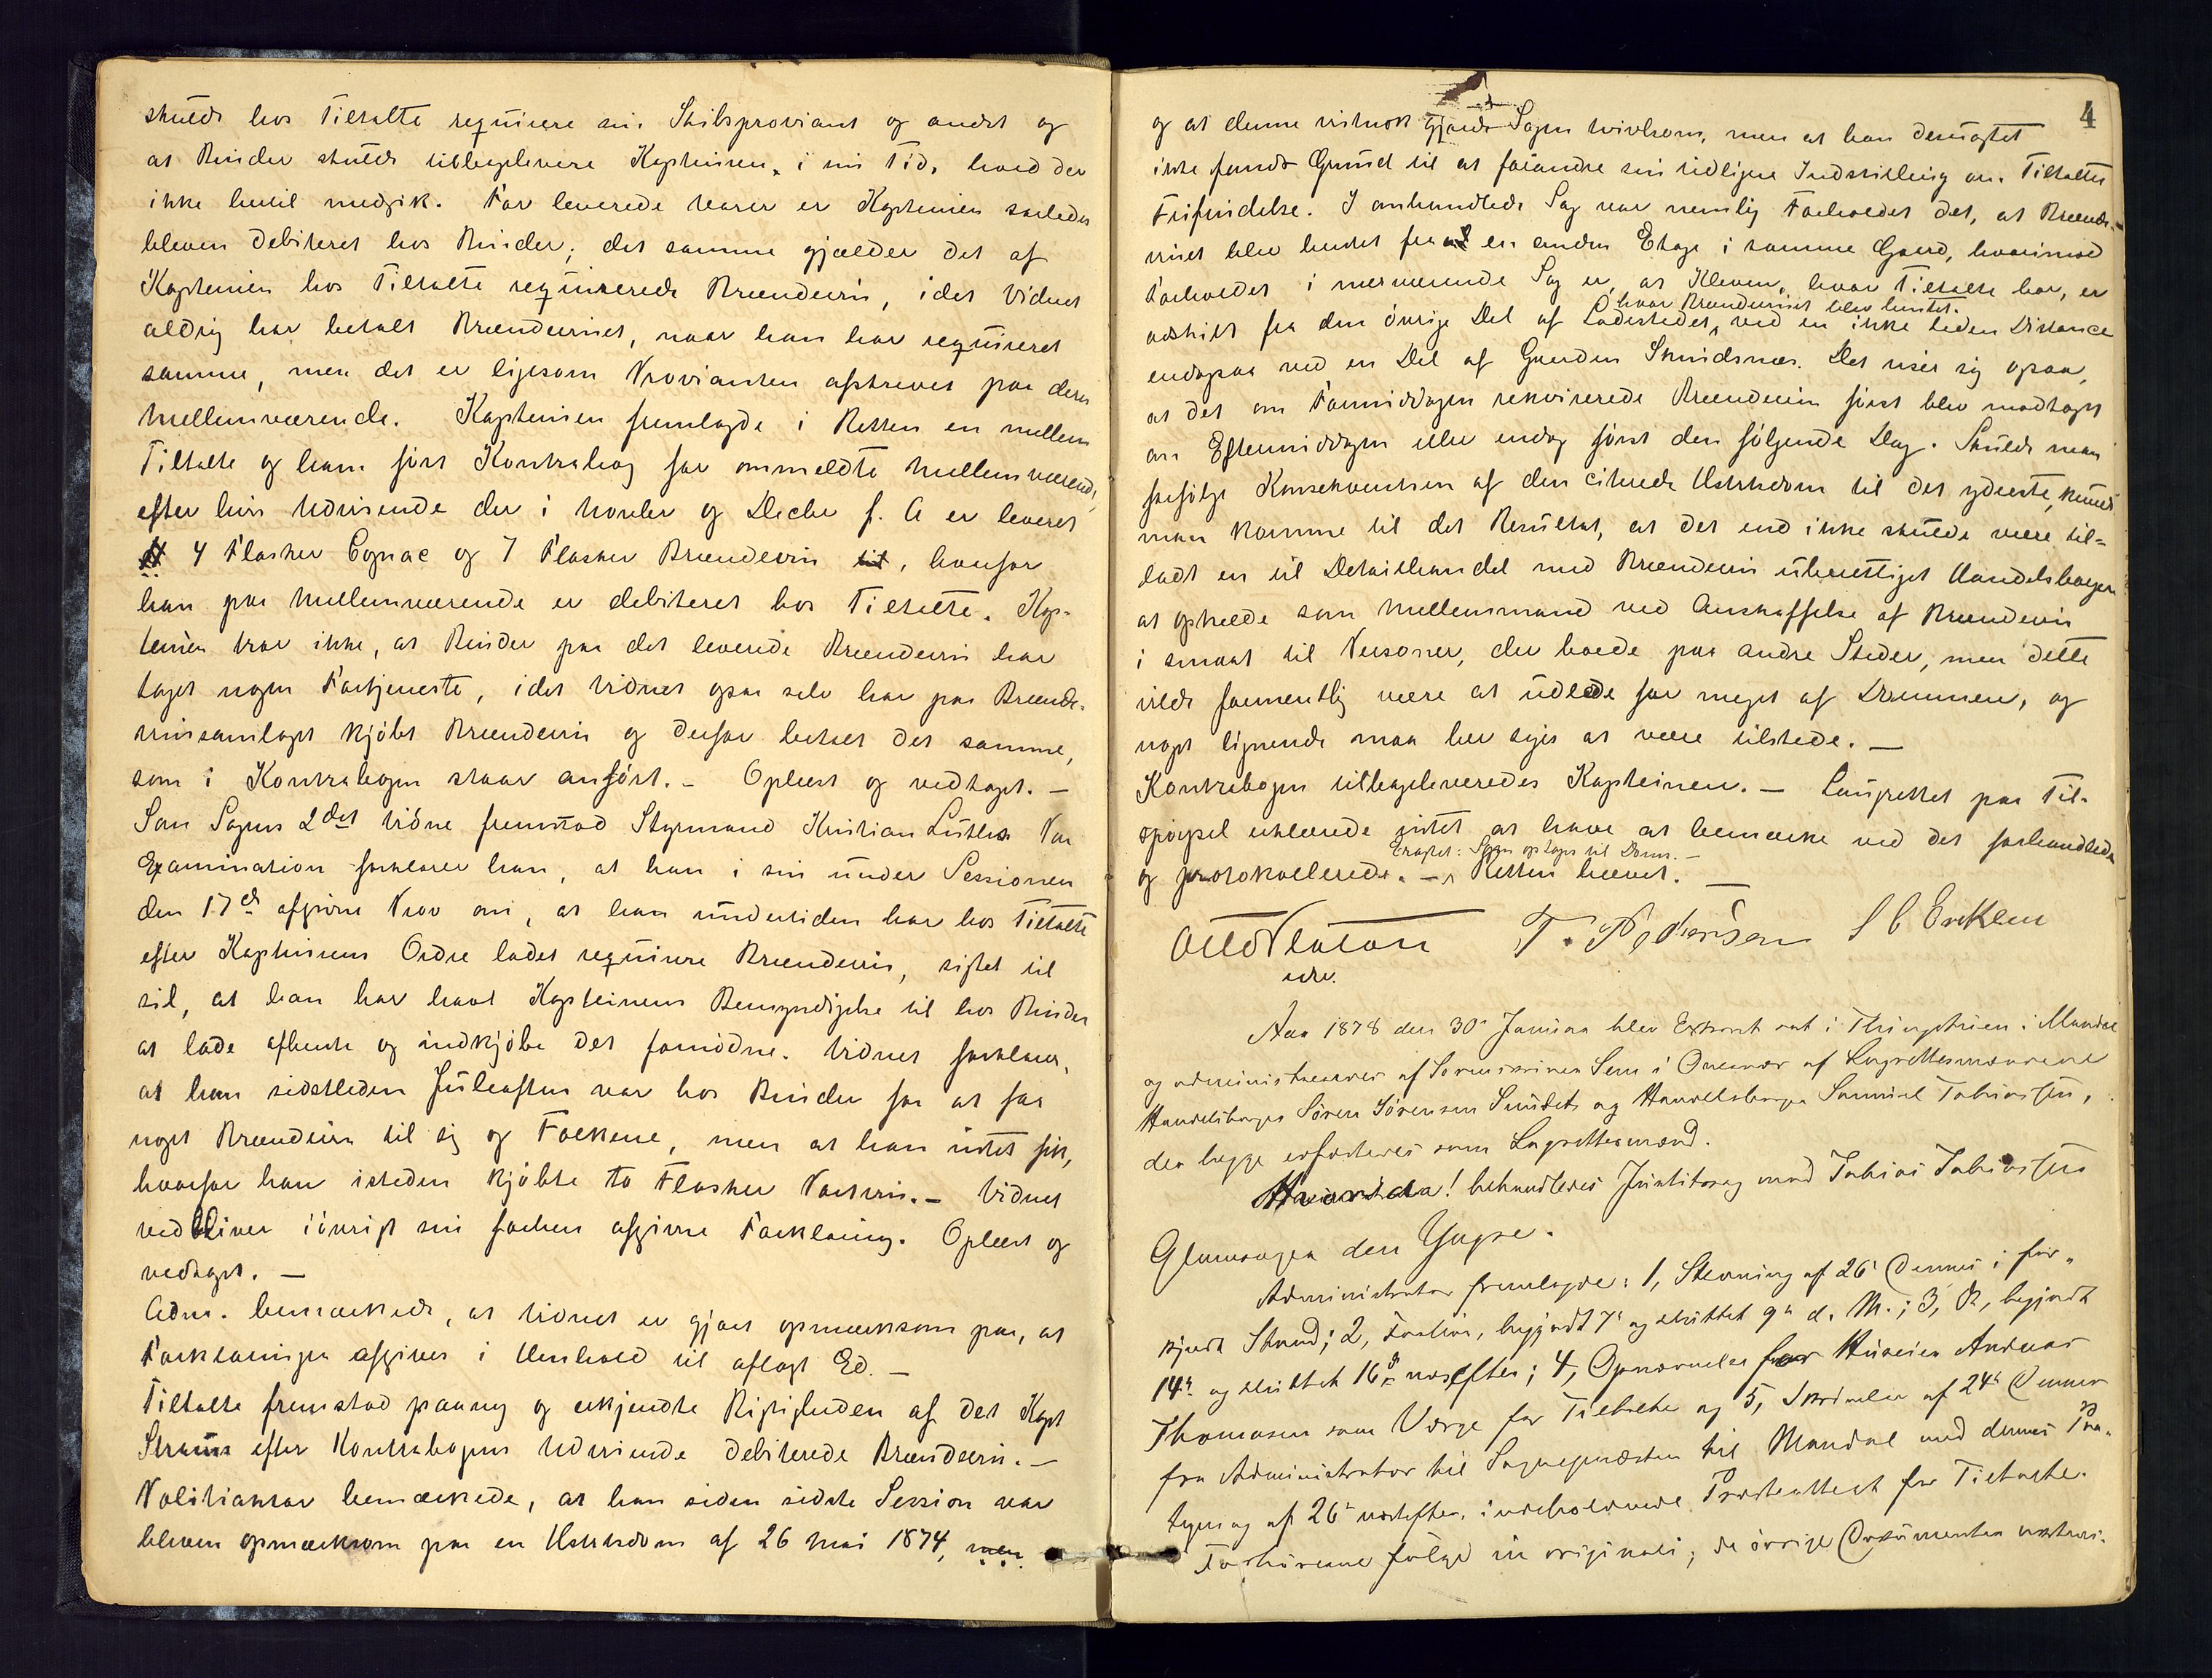 skulde hos Tiltalte requirere sin Skibsproviant og andet og
at Rinder skulde tilbagelevere Kapteinen, i sin Tid, hvad der
ikke hertil medgik. For leverede Varer er Kapteinen saaledes
bleven debiteret hos Rinder; det samme gjælder det af
Kapteinen hos Tiltalte requirerede Brændevin, idet Vidnet
aldrig har betalt Brændevinet, naar han har requireret
samme, men det er ligesom Provianten afskrevet paa deres
Mellemværende. Kapteinen fremlagde i Retten en mellem
Tiltalte og ham ført Kontrabog for ommeldte Mellemværende,
efter hvis Udvisende der i Novbr og Decbr f. A er leveret
4 Flasker Cognac og 7 Flasker Brændevin til, hvorfor
han paa Mellemværende er debiteret hos Tiltalte. Kap-
teinen tror ikke, at Rinder paa det leverede Brændevin har
taget nogen Fortjeneste, idet Vidnet ogsaa selv har paa Brænde-
vinsamlaget kjøbt Brændevin og derfor betalt det samme,
som i Kontrabogen staar anført. – Oplæst og vedtaget. –
Som Sagens 2det Vidne fremstod Styrmand Kristian Luther Paa
Examination forklarer han, at han i sin under Sessionen
den 17de afgivne Prov om, at han undertiden har hos Tiltalte
efter Kapteinens Ordre ladet requirere Brændevin, sigtet til
til, at han har havt Kapteinens Bemyndigelse til hos Rinder
at lade afhente og indkjøbe det fornødne. Vidnet forklarer,
at han sidstleden Juleaften var hos Rinder for at faa
noget Brændevin til sig og Folkene, men at han intet fik,
hvorfor han isteden kjøbte to Flasker Portvin. – Vidnet
vedbliver iøvrigt sin forhen afgivne Forklaring. Oplæst og
vedtaget. –
Adm. bemærkede, at Vidnet er gjort opmærksom paa, at
Forklaringen afgives i Henhold til aflagt Ed. –
Tiltalte fremstod paany og erkjendte Rigtigheden af det Kapt
efter Kontrabogens Udvisende debiterede Brændevin. –
Politiaktor bemærkede, at han siden sidste Session var
bleven opmærksom paa en Høiesteretsdom af 26 Mai 1874, men
4
og at denne vistnok gjorde Sagen tvivlsom, men at han desuagtet
ikke fandt Grund til at forandre sin tidligere Indstilling om Tiltaltes
Frifindelse. I omhandlede Sag var nemlig Forholdet det, at Brænde-
vinet blev hentet fra en anden Etage i samme Gaard, hvorimod
Forholdet i nærværende Sag er, at Kleven, hvor Tiltalte bor, er
hvor Brændevinet blev hentet.
adskilt fra den øvrige Del af Ladestedet, ved en ikke liden Distance
endogsaa ved en Del af Gaarden Skuidsnæs. Det viser sig ogsaa,
at det om Formiddagen rekvirerede Brændevin først blev modtaget
om Eftermiddagen eller endog først den følgende Dag. Skulde man
forfølge Konsekventsen af den citerede Høiesteretsdom til det yderste, kunde
man komme til det Resultat, at det end ikke skulde være til-
ladt en til Detailhandel med Brændevin uberettiget Handelsborger
at optræde som Mellemmand ved Anskaffelse af Brændevin
i smaat til Personer, der boede paa andre Steder, men dette
vilde formentlig være at udlede for meget af Dommen, og
noget lignende maa her siges at være tilstede. –
Kontrabogen tilbageleveredes Kapteinen. – Laugrettet paa Til-
spørgsel erklærede intet at have at bemærke ved det forhandlede
Eragtet: Sagen optages til Doms. –
og protokollerede. – Retten hævet. –
Otto Platou T. Pedersen S C Eriksen
edsv.
Aar 1878 den 30te Januar blev Extraret sat i Thingstuen i Mandal
og administreret af Sorenskriver Sem i Overvær af Lagrettesmændene
Handelsborger Søren Sørensen Sundet og Handelsborger Samuel Tobiassen,
der begge edfæstedes som Lagrettesmænd.
Hvorda! behandledes Justitssag mod Tobias Tobiassen
Glamsager den Yngre.
Administrator fremlagde: 1, Stevning af 26de Dennes i for-
kyndt Stand; 2, Forhør, begyndt 7de og sluttet 9de d. M.; 3, Do, begyndt
14de og sluttet 16de næstefter; 4, Opnævnelse for Huseier Andreas
Thomasen som Verge for Tiltalte og 5, Skrivelse af 24de Dennes
fra Administrator til Sognepræsten til Mandal med dennes Paa-
tegning af 26de næstefter, indeholdende Præsteattest for Tiltalte.
Forhørerne følge in originali, de øvrige Documenter